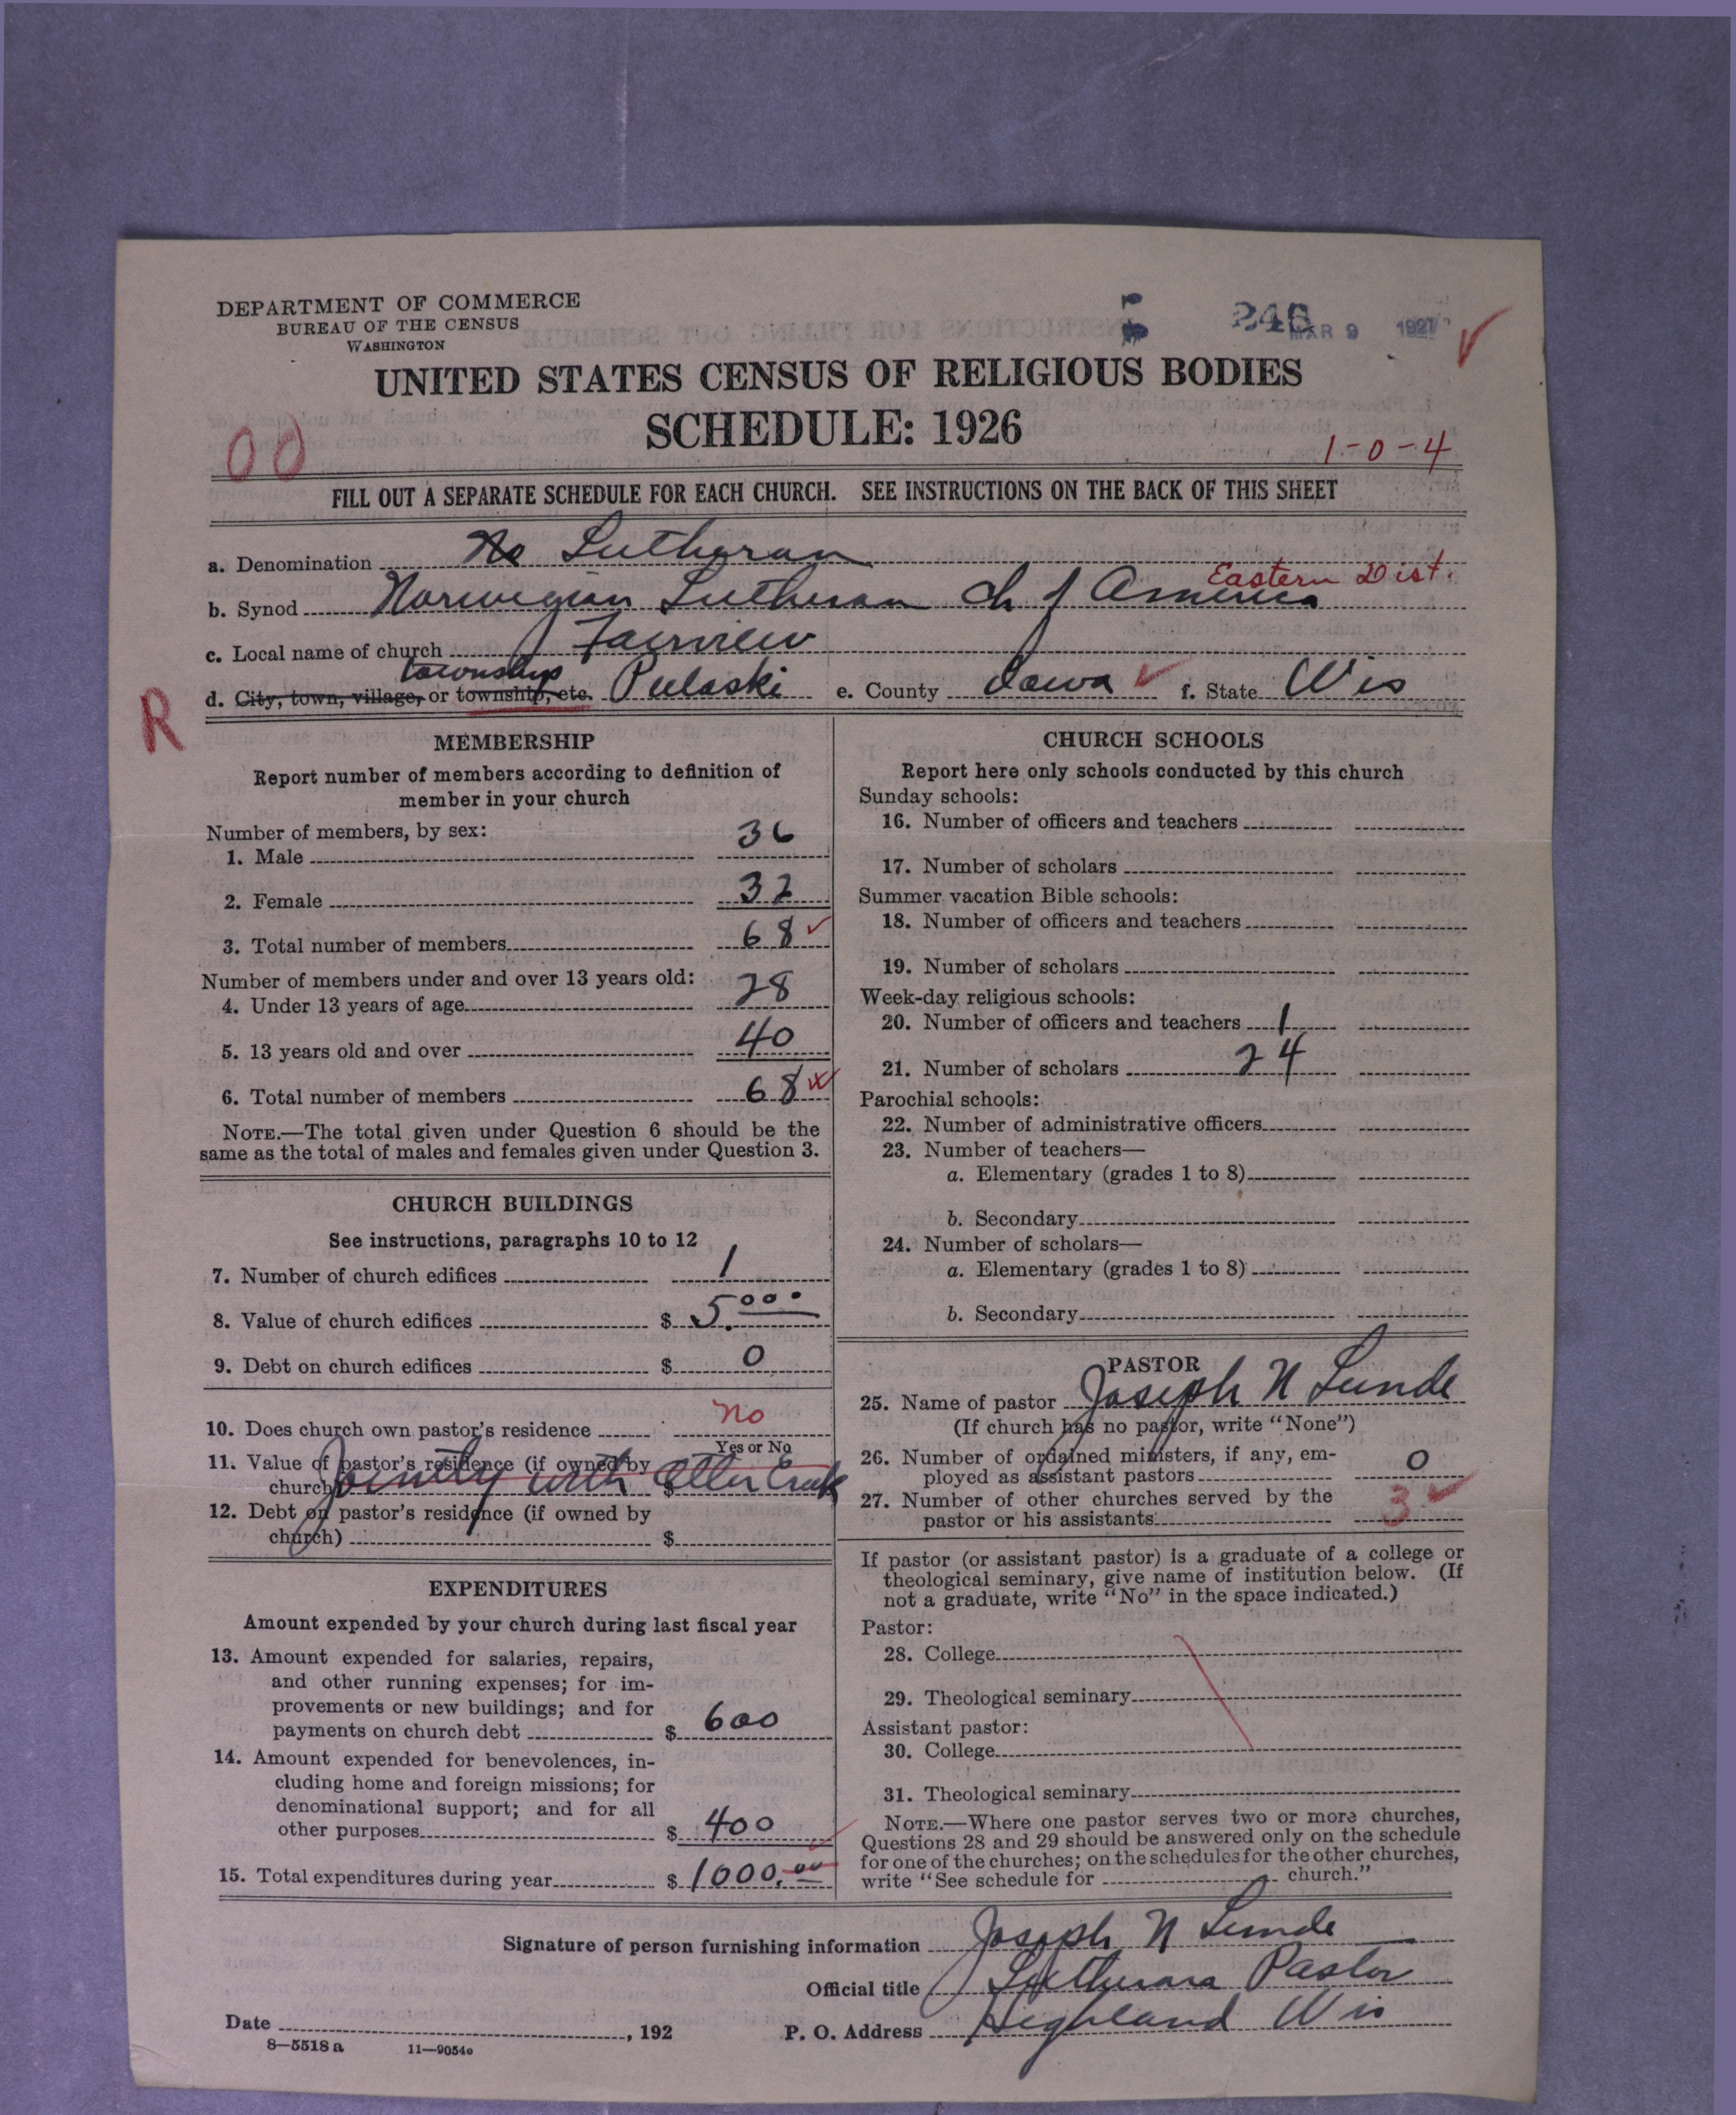 DEPARTMENT OF COMMERCE
BUREAU OF THE CENSUS
WASHINGTON
246
MAR 9 1927
UNITED STATES CENSUS OF RELIGIOUS BODIES
SCHEDULE: 1926
00
1-0-4
FILL OUT A SEPARATE SCHEDULE FOR EACH CHURCH. SEE INSTRUCTIONS ON THE BACK OF THIS SHEET
a. Denomination No Lutheran
Eastern Dist.
b. Synod Norwegian Lutheran Ch of America
c. Local name of church Fairview
township
d. City, town, village, or township, etc. Pulaski e. County Iowa f. State Wis
R
MEMBERSHIP
Report number of members according to definition of
member in your church
Number of members, by sex:
1. Male 36
2. Female 32
3. Total number of members 68
Number of members under and over 13 years old:
4. Under 13 years of age 28
5. 13 years old and over 40
6. Total number of members 68
NOTE.—The total given under Question 6 should be the
same as the total of males and females given under Question 3.
CHURCH BUILDINGS
See instructions, paragraphs 10 to 12
7. Number of church edifices 1
8. Value of church edifices $ 5.000
9. Debt on church edifices $ 0
10. Does church own pastor's residence no
Yes or No
11. Value of pastor's residence (if owned by
church) $
Jointly with Otter Creek
12. Debt on pastor's residence (if owned by
church) $
EXPENDITURES
Amount expended by your church during last fiscal year
13. Amount expended for salaries, repairs,
and other running expenses; for im-
provements or new buildings; and for
payments on church debt $ 600
14. Amount expended for benevolences, in-
cluding home and foreign missions; for
denominational support; and for all
other purposes $ 400
15. Total expenditures during year $ 1000.00
CHURCH SCHOOLS
Report here only schools conducted by this church
Sunday schools:
16. Number of officers and teachers
17. Number of scholars
Summer vacation Bible schools:
18. Number of officers and teachers
19. Number of scholars
Week-day religious schools:
20. Number of officers and teachers 1
21. Number of scholars 24
Parochial schools:
22. Number of administrative officers
23. Number of teachers—
a. Elementary (grades 1 to 8)
b. Secondary
24. Number of scholars—
a. Elementary (grades 1 to 8)
b. Secondary
PASTOR
25. Name of pastor Joseph N Lunde
(If church has no pastor, write "None")
26. Number of ordained ministers, if any, em-
ployed as assistant pastors 0
27. Number of other churches served by the
pastor or his assistants 3
If pastor (or assistant pastor) is a graduate of a college or
theological seminary, give name of institution below. (If
not a graduate, write "No" in the space indicated.)
Pastor:
28. College
29. Theological seminary
Assistant pastor:
30. College
31. Theological seminary
NOTE.—Where one pastor serves two or more churches,
Questions 28 and 29 should be answered only on the schedule
for one of the churches; on the schedules for the other churches,
write "See schedule for church."
Signature of person furnishing information Joseph N Lunde
Official title Lutheran Pastor
Date , 192 P. O. Address Highland Wis
8—5518a 11—9054c